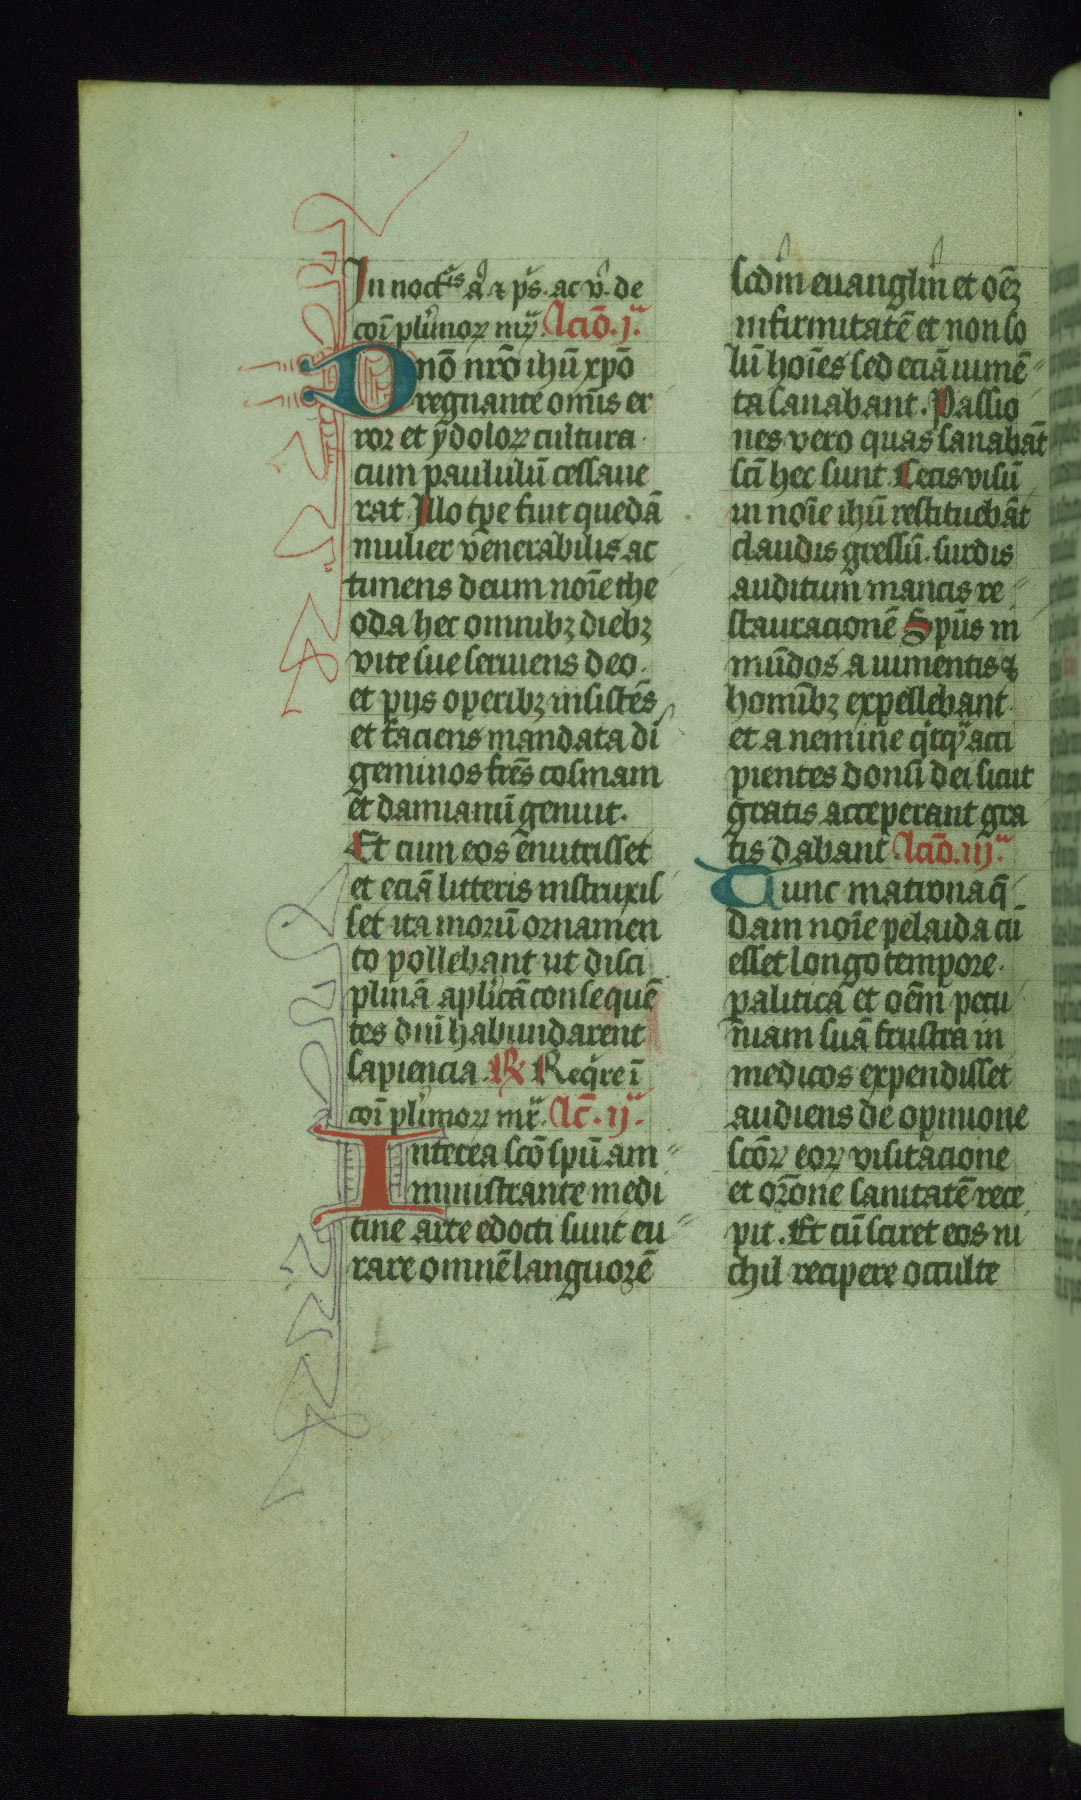 In noct̄is a̔ ⁊ ps̄. ac v̄. de
cōi plīmoꝝ mr̄. lcīo. j.ᵃ
Dnō nrō ihū xpō
regnante omīs er
ror et ẏdoloꝝ cultura
cum paululū cessaue
rat Illo tp̄e fuit quedā
mulier venerabilis ac
timens deum noīe the
oda hec omnibꝫ diebꝫ
vite sue seruiens deo.
et pijs operibꝫ insistēs
et faciens mandata dī
geminos frēs cosmam
et damianū genuit.
Et cum eos enutrisset
et eciā litteris instruxis
set ita morū ornamen
to pollebant ut disci
plinā aplīcā consequē
tes dnī habundarent
sapiencia. R̸ Reqūre ī
cōi plīmoꝝ mr̄. lc̄. ij.ᵃ
Interea scō spū am
ministrante medi
cine arte edocti sunt cu
rare omnē languorē
scdm̄ euangliū et oēꝫ
infirmitatē et non so
lū hoīes sed eciā iumē
ta sanabant. Passio
nes vero quas sanabāt
scī hec sunt Cecis visū
in noīe ihū restituebāt
claudis gressū. surdis
auditum mancis re
stauracionē Spūs in
mūdos a iumentis ⁊
homībꝫ expellebant
et a nemine qͥcqᵃ acci
pientes donū dei sicut
gratis acceperant gra
tis dabant lcīo. iij.ᵃ
Tunc matrona q̄
dam noīe pelaida cū
esset longo tempore
palitica et oēm pecu
niam suā frustra in
medicos expendisset
audiens de opinione
scōꝝ eoꝝ visitacione
et orōne sanitatē rece
pit. Et cū sciret eos ni
chil recipere occulte